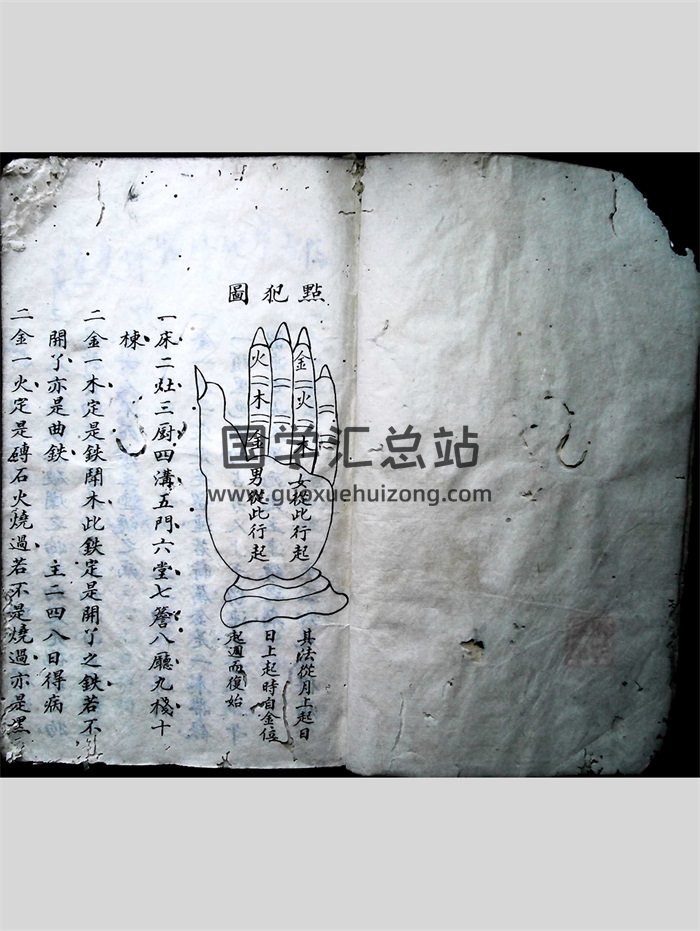 點犯圖
金
火
木
女從此行起
火
木
金
男從此行起
其法從月上起日
日上起時自金位
起週而復始
一床二灶三厨四溝五門六堂七簷八廳九棧十
棟
二金一木定是鉄閗木此鉄定是開了之鉄若不
開了亦是曲鉄 主二四八日得病
二金一火定是磚石火燒過若不是燒過亦是黑
国学汇总站
www.guoxuehuizong.com